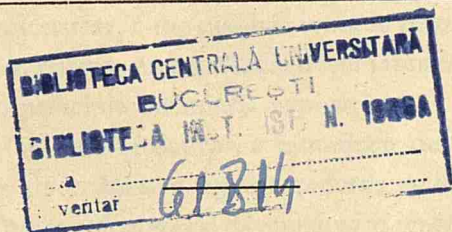 BIBLIOTECA CENTRALĂ UNIVERSITARĂ
BUCUREȘTI
BIBLIOTECA INST. IST. N. IORGA
a
ventar 61814